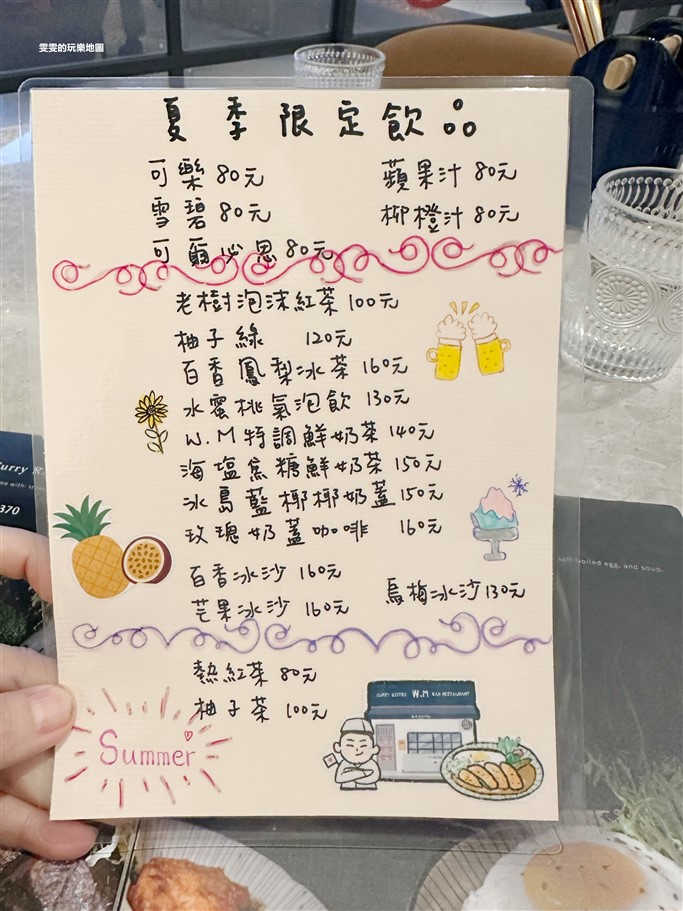 雯雯的玩樂地圖
夏季限定飲品
可樂 80元
蘋果汁 80元
雪碧 80元
柳橙汁 80元
可爾必思 80元
老樹泡沫紅茶 100元
柚子綠 120元
百香鳳梨冰茶 160元
水蜜桃氣泡飲 130元
W.M特調鮮奶茶 140元
海塩焦糖鮮奶茶 150元
冰島藍椰椰奶蓋 150元
玫瑰奶蓋咖啡 160元
百香冰沙 160元
烏梅冰沙 130元
芒果冰沙 160元
熱紅茶 80元
柚子茶 100元
Summer
CURRY BISTRO W.M BAR RESTAURANT
Curry R
370
boiled egg, and soup.